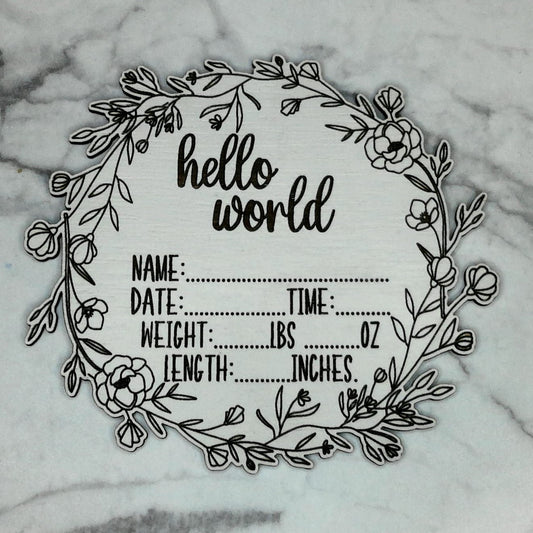 hello
world
NAME:..............................
DATE:...............TIME:........
WEIGHT:........LBS ........OZ
LENGTH:........INCHES.